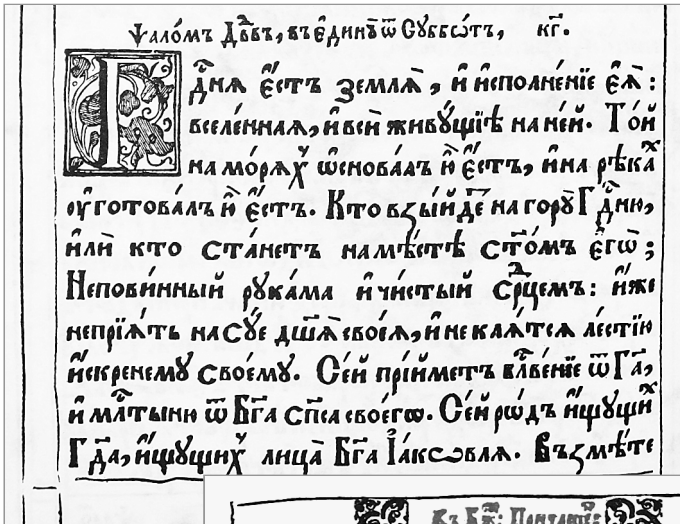 Ѱало́мъ Дв҃двъ, въ є҆ди́нꙋ ѿ Сꙋббѡ́тъ, кг҃.
Гдⷭ҇нѧ є҆́стъ землѧ̀, и҆ и҆сполне́нїе є҆ѧ̀:
вселе́ннаѧ, и҆ всѝ живꙋ́щїѣ на не́й. То́й
на мо́рѧхъ ѡ҆снова́лъ ю҆̀ є҆́стъ, и҆ на рѣка́хъ
ᲂу҆гото́валъ ю҆̀ є҆́стъ. Кто взы́йдетъ на горꙋ̀ Гдⷭ҇ню,
и҆лѝ кто ста́нетъ на мѣ́стѣ ст҃о́мъ є҆гѡ̀;
Непови́нный рꙋка́ма и҆ чи́стый ср҃дцемъ: и҆́же
непрїѧ́тъ на сꙋ́е дш҃ѧ̀ своеѧ̀, и҆ не клѧ́тсѧ ле́стїю
и҆́скреннемꙋ своемꙋ̀. Се́й прїи́метъ блⷭ҇ве́нїе ѿ Гдⷭ҇а,
и҆ млⷭ҇тыню ѿ Бг҃а сп҃са своегѡ̀. Се́й рѡ́дъ и҆́щꙋщихъ
Гдⷭ҇а, и҆́щꙋщихъ лица̀ Бг҃а І҆а́кѡвлѧ. Възмѣ́те